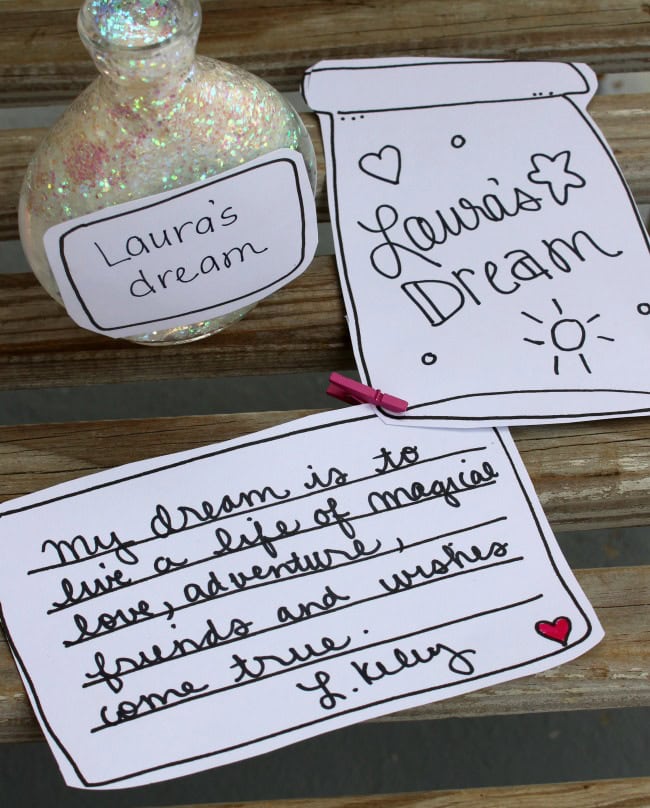 Laura's
dream
Laura's
Dream
My dream is to
live a life of magical
love, adventure,
friends and wishes
come true.
L. Kelly